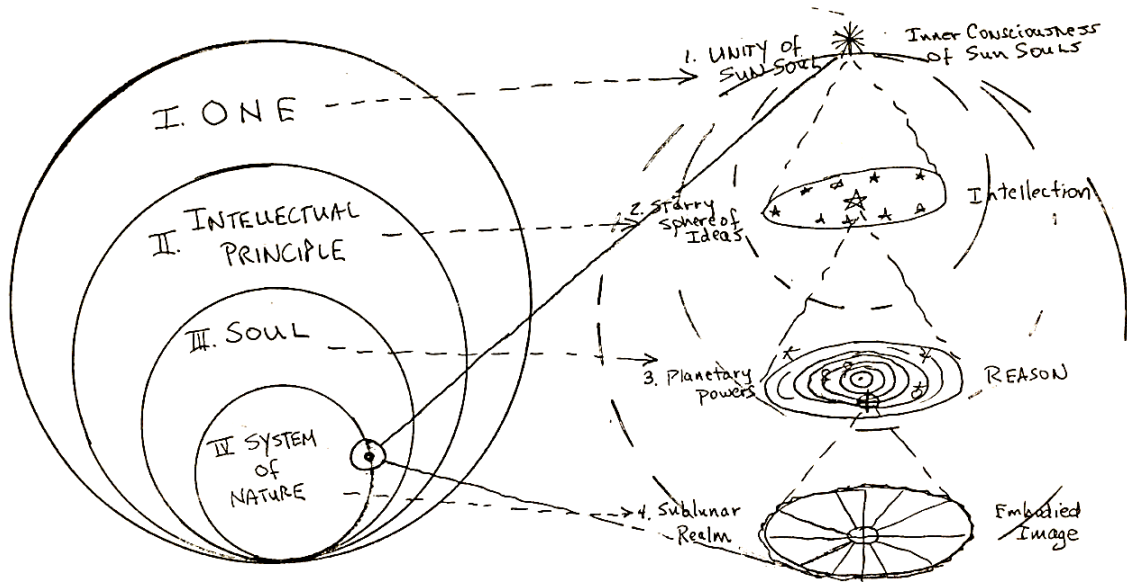 I. ONE
II. INTELLECTUAL
PRINCIPLE
III. SOUL
IV SYSTEM
of
NATURE
1. UNITY of
SUN SOUL
Inner Consciousness
of Sun Souls
2. Starry
Sphere of
Ideas
Intellection
3. Planetary
Powers
REASON
4. Sublunar
Realm
Embodied
Image